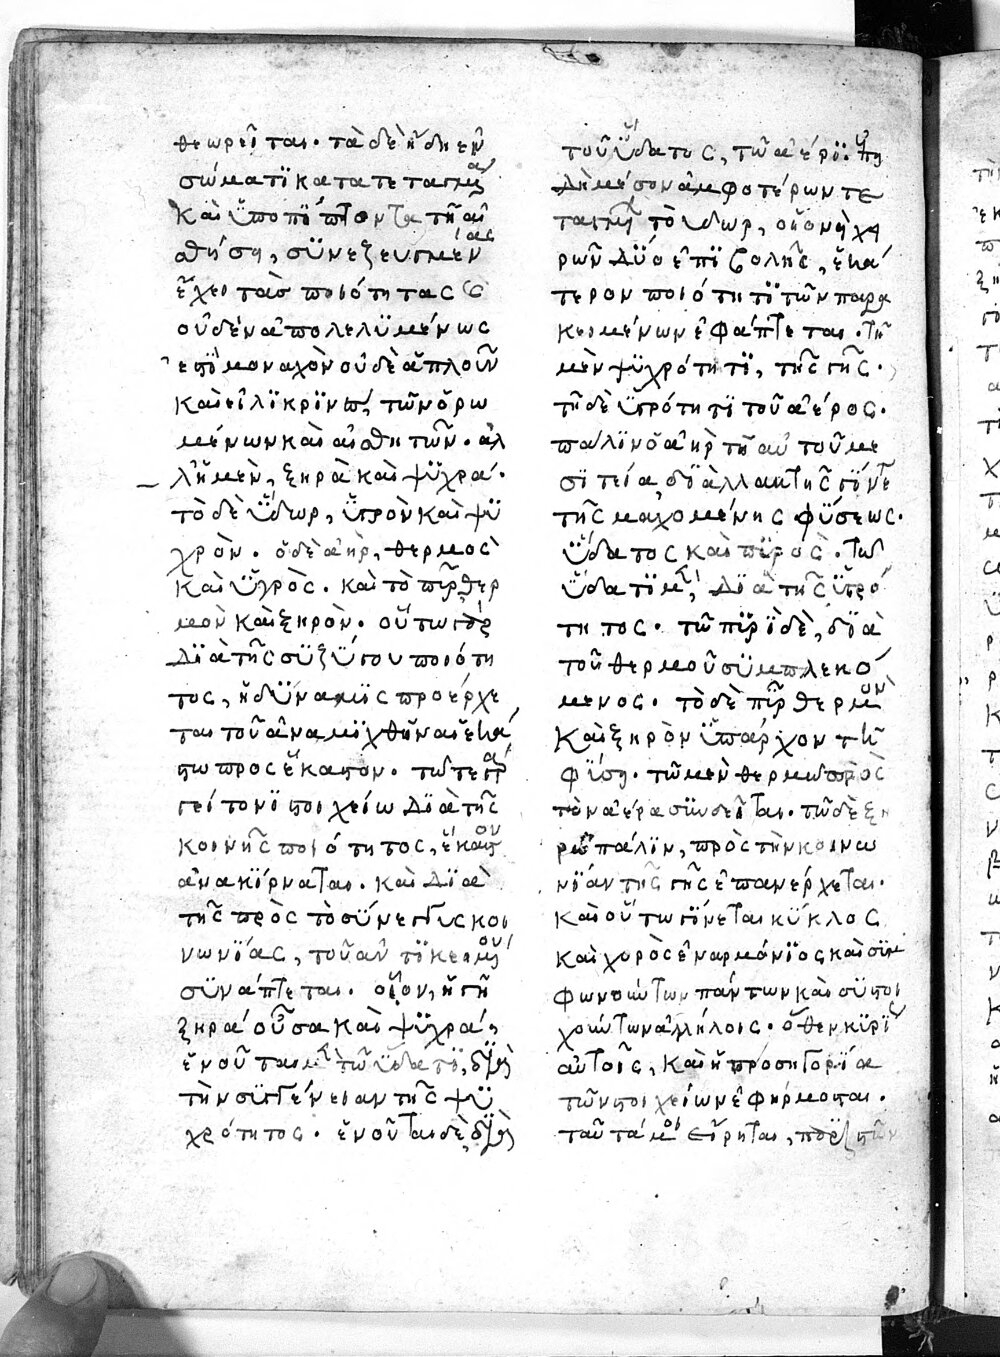 θεωρεῖται. τὰ δὲ ἤδη ἐν
σώματι κατατεταγμένα
καὶ ὑποπίπτοντα τῇ αἰ
σθήσει, συνεζευγμένας
ἔχει τὰς ποιότητας
οὐδὲν ἀπολελυμένως
ἐστὶ μοναχὸν οὐδὲ ἁπλοῦν
καὶ εἰλικρινὲς, τῶν ὁρω
μένων καὶ αἰσθητῶν. ἀλ
λ' ἡ μὲν, ξηρὰ καὶ ψυχρά.
τὸ δὲ ὕδωρ, ὑγρὸν καὶ ψυ
χρὸν. ὁ δὲ ἀὴρ, θερμὸς
καὶ ὑγρὸς. καὶ τὸ πῦρ, θερ
μὸν καὶ ξηρὸν. οὕτω γὰρ
διὰ τῆς συζύγου ποιότη
τος, ἡ δύναμις προέρχε
ται τοῦ ἀναμιχθῆναι ἑκά
στω πρὸς ἕκαστον. τῶ τε γὰρ
γείτονι στοιχείω διὰ τῆς
κοινῆς ποιότητος, ἕκαστον
ἀνακίρναται. καὶ διὰ
τῆς πρὸς τὸ σύνεγγυς κοι
νωνίας, τοῦ ἀντικειμένου
συνάπτεται. οἷον, ἡ γῆ
ξηρὰ οὖσα καὶ ψυχρά,
ἑνοῦται μὲν τῶ ὕδατι, διὰ
τὴν συγγένειαν τῆς ψυ
χρότητος. ἑνοῦται δὲ, διὰ
τοῦ ὕδατος, τῶ ἀέρι. ἐπει
δὴ μέσον ἀμφοτέρων τε
ταγμένον τὸ ὕδωρ, οἷόν τι χει
ρῶν δύο ἐπιβολῆς, ἑκα
τέρου ποιότητι τῶν παρα
κειμένων ἐφάπτεται. τῇ
μὲν ψυχρότητι, τῆς γῆς.
τῇ δὲ ὑγρότητι τοῦ ἀέρος.
πάλιν ὁ ἀὴρ τῇ αὐτοῦ με
σιτεία, διαλλακτὴς γίνεται
τῆς μαχομένης φύσεως.
ὕδατος καὶ πυρὸς. τῶ
ὕδατι μὲν, διὰ τῆς ὑγρό
τητος. τῶ πυρὶ δὲ, διὰ
τοῦ θερμοῦ συμπλεκό
μενος. τὸ δὲ πῦρ θερμὸν
καὶ ξηρὸν ὑπάρχον τῇ
φύσει. τῶ μὲν θερμῶ πρὸς
τὸν ἀέρα συνδεῖται. τῶ δὲ ξη
ρῶ πάλιν, πρὸς τὴν κοινω
νίαν τῆς γῆς ἐπανέρχεται.
καὶ οὕτω γίνεται κύκλος
καὶ χορὸς ἐναρμόνιος καὶ συμ
φωνούντων πάντων καὶ συστοι
χούντων ἀλλήλοις. ὅθεν κυρίως
αὐτοῖς, καὶ ἡ προσηγορία
τῶν στοιχείων ἐφήρμοσται.
ταῦτά μοι εἴρηται,